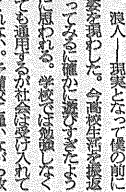 浪人――現実となって僕の前に
姿を現わした。今高校生活を振返
ってみるに確かに遊びすぎたよう
に思われる。学校では勉強しなく
ても通用するが社会は受け入れて